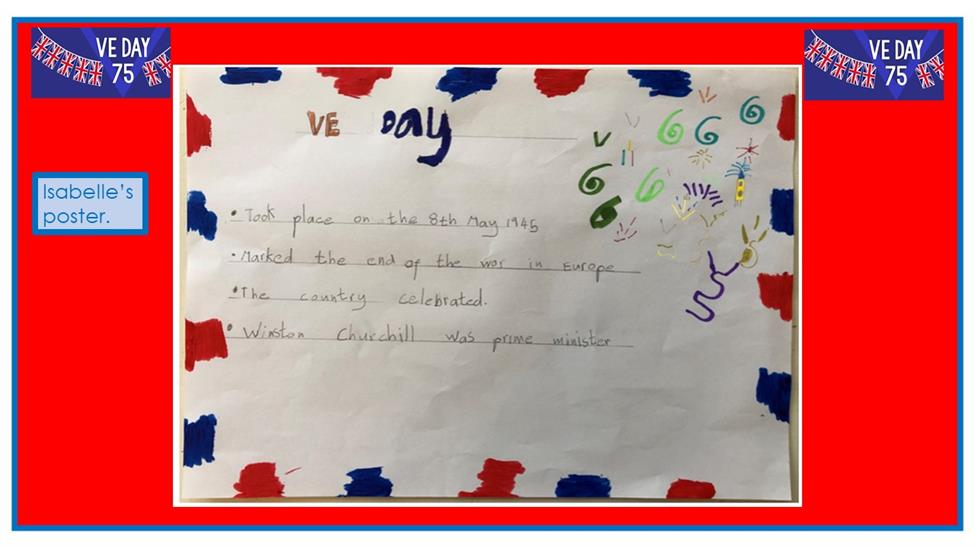 VE DAY
75
VE DAY
75
Isabelle's
poster.
VE Day
• Took place on the 8th May 1945
• Marked the end of the war in Europe
• The country celebrated.
• Winston Churchill was prime minister